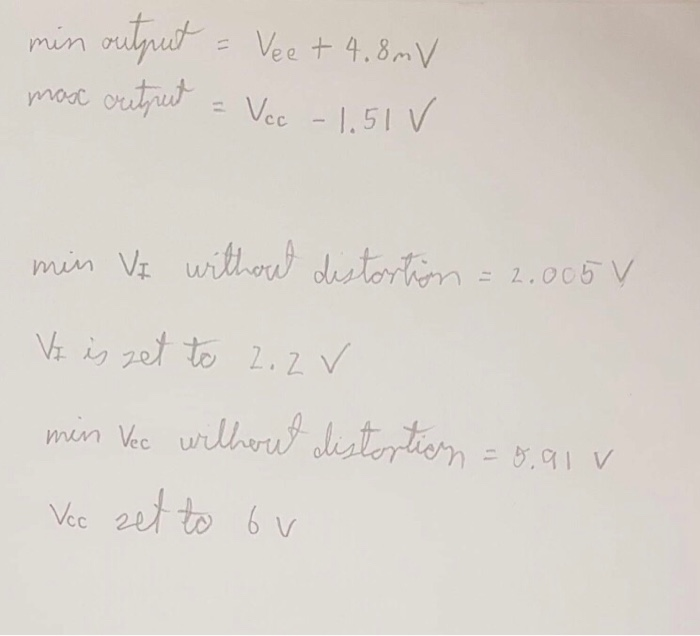 min output = Vee + 4.8mV
max output = Vcc - 1.51 V
min VI without distortion = 2.005 V
VI is set to 2.2 V
min Vcc without distortion = 5.91 V
Vcc set to 6 V